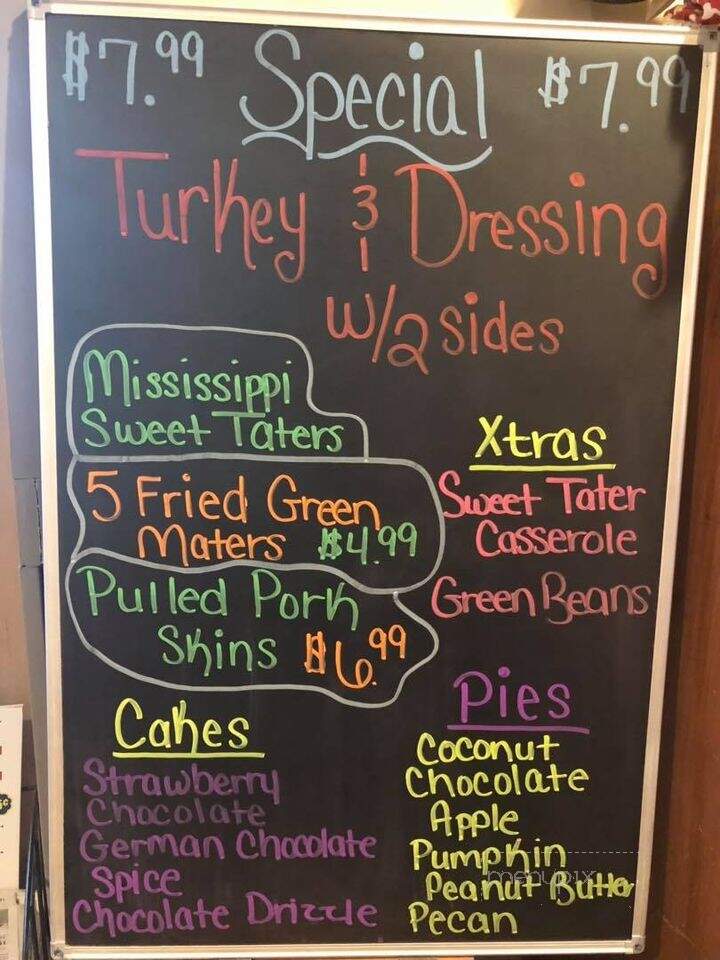 $7.99 Special $7.99
Turkey & Dressing
w/2 sides
Mississippi
Sweet Taters
5 Fried Green
Maters $4.99
Pulled Pork
Skins $6.99
Xtras
Sweet Tater
Casserole
Green Beans
Cakes
Strawberry
Chocolate
German Chocolate
Spice
Chocolate Drizzle
Pies
Coconut
Chocolate
Apple
Pumpkin
Peanut Butter
Pecan
menupix